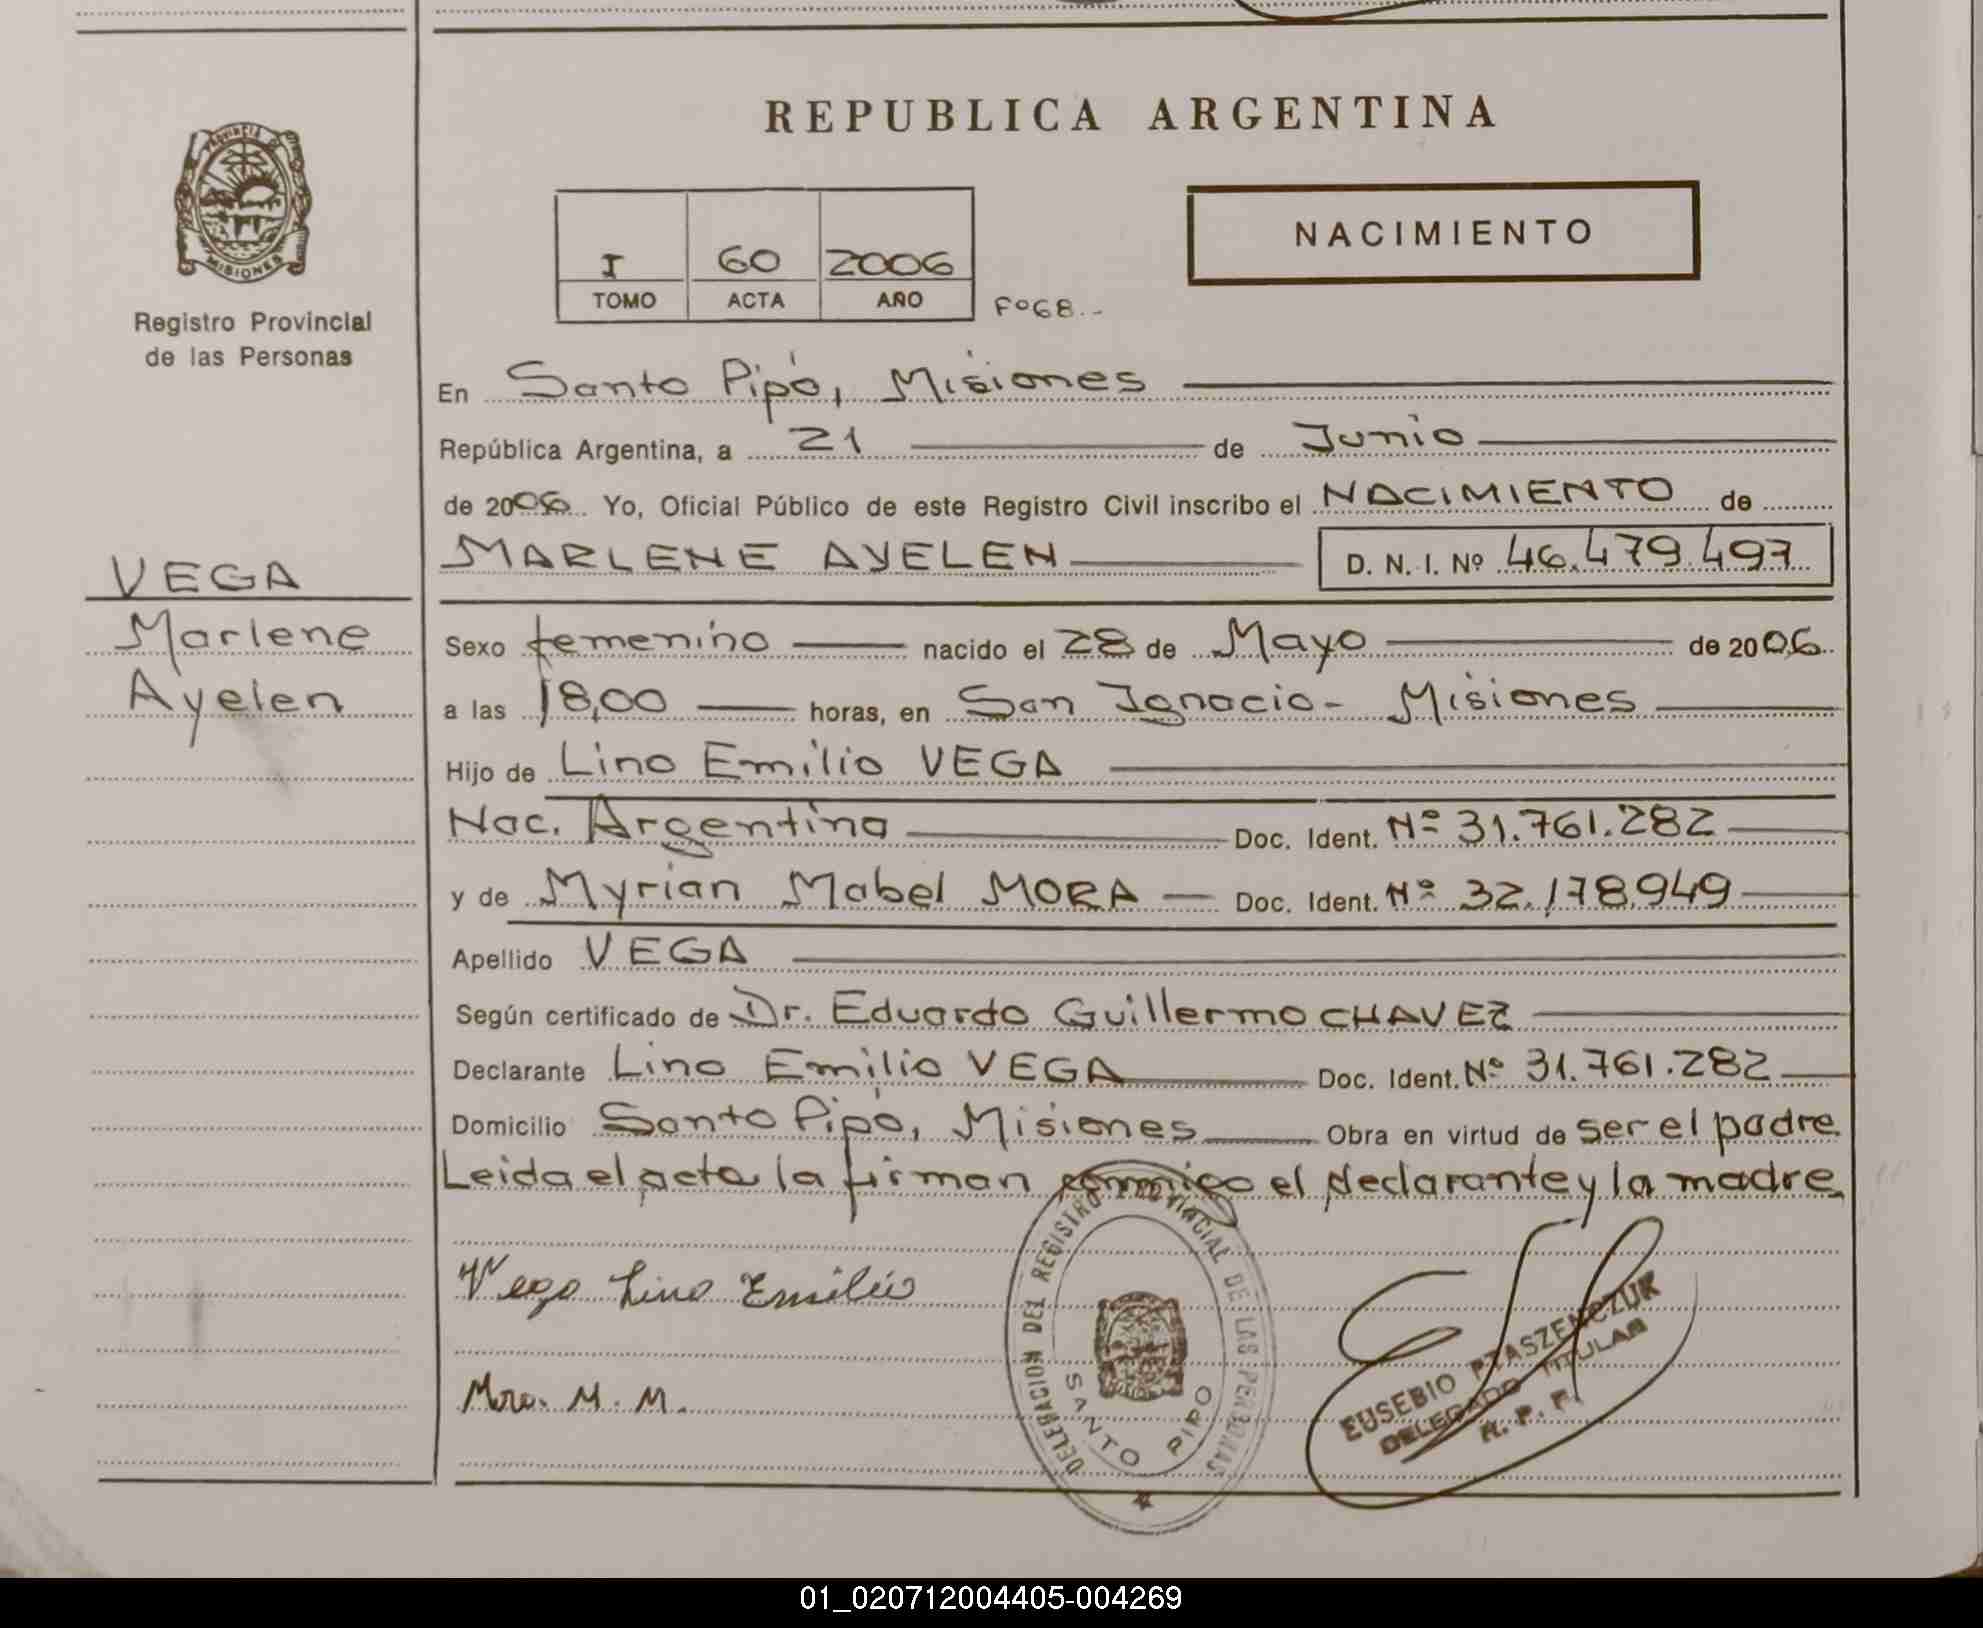 REPUBLICA ARGENTINA
PROVINCIA D
MISIONES
Registro Provincial
de las Personas
I 60 2006
TOMO ACTA AÑO
Fº68..-
NACIMIENTO
En Santo Pipó, Misiones
República Argentina, a 21 de Junio
de 2006 Yo, Oficial Público de este Registro Civil inscribo el NACIMIENTO de
MARLENE AYELEN D. N. I. Nº 46.479.497
VEGA
Marlene
Ayelen
Sexo femenino nacido el 28 de Mayo de 2006
a las 18,00 horas, en San Ignacio - Misiones
Hijo de Lino Emilio VEGA
Nac. Argentina Doc. Ident. Nº 31.761.282
y de Myrian Mabel MORA Doc. Ident. Nº 32.178.949
Apellido VEGA
Según certificado de Dr. Eduardo Guillermo CHAVEZ
Declarante Lino Emilio VEGA Doc. Ident. Nº 31.761.282
Domicilio Santo Pipó, Misiones Obra en virtud de ser el padre
Leida el acta la firman conmigo el declarante y la madre
Vega Lino Emilio
M. M.
DELEGACION DEL REGISTRO PROVINCIAL DE LAS PERSONAS
SANTO PIPO
EUSEBIO PTASZENCZUK
DELEGADO TITULAR
R. P. P.
01_020712004405-004269